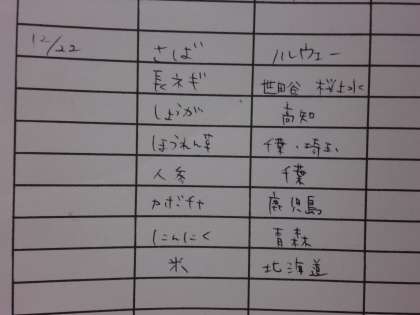 12/22 さば ノルウェー
長ネギ 世田谷 桜上水
しょうが 高知
ほうれん草 千葉・埼玉
人参 千葉
カボチャ 鹿児島
にんにく 青森
米 北海道